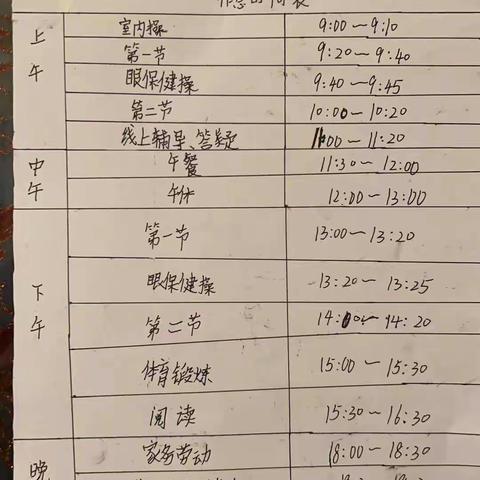 作息时间表
上午
室内操 9:00~9:10
第一节 9:20~9:40
眼保健操 9:40~9:45
第二节 10:00~10:20
线上辅导、答疑 11:00~11:20
中午
午餐 11:30~12:00
午休 12:00~13:00
下午
第一节 13:00~13:20
眼保健操 13:20~13:25
第二节 14:00~14:20
体育锻炼 15:00~15:30
阅读 15:30~16:30
晚
家务劳动 18:00~18:30